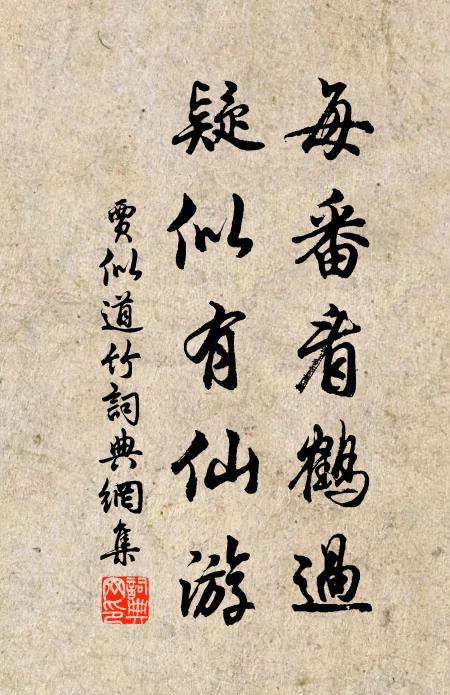 每番看鶴過
疑似有仙游
賈似道竹詞典網集
詞典網印